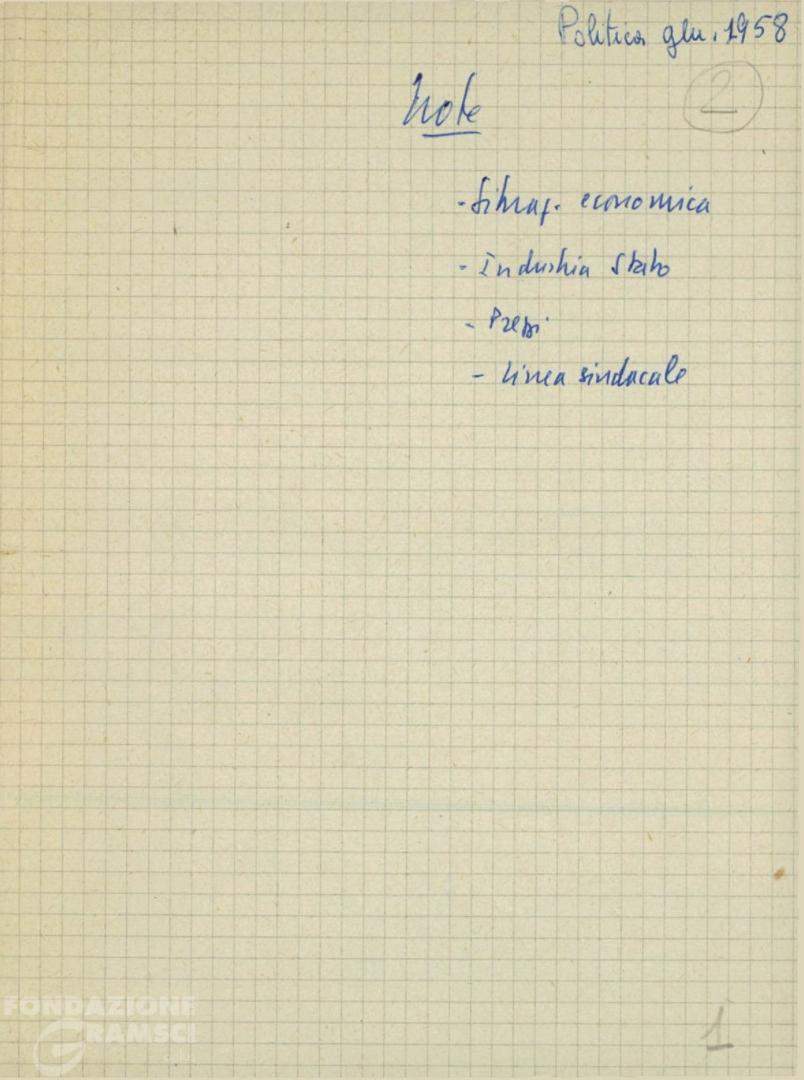 Politica gen. 1958
2
Note
- Situaz. economica
- Industria Stato
- Prezzi
- Linea sindacale
FONDAZIONE
GRAMSCI
1